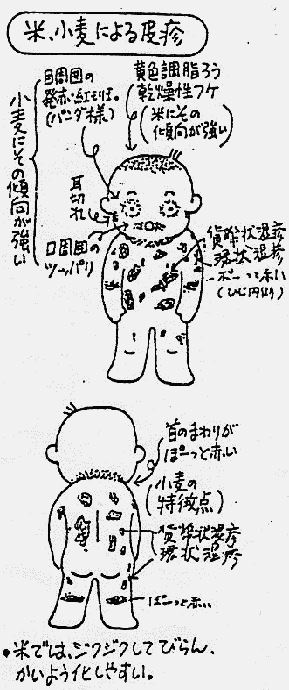 米、小麦による皮疹
目周囲の
発赤、紅もりば。
(パンダ様)
黄色調脂ろう
乾燥性フケ
(米にその
傾向が強い)
小麦にその傾向が強い
耳切れ
口周囲の
ツッパリ
貨幣状湿疹
環状湿疹
ボーッと赤い
首のまわりが
ぽーっと赤い
(小麦の
特徴点)
貨幣状湿疹
環状湿疹
ぽーっと赤い
•米では、ジクジクしてびらん、
かいよう化しやすい。